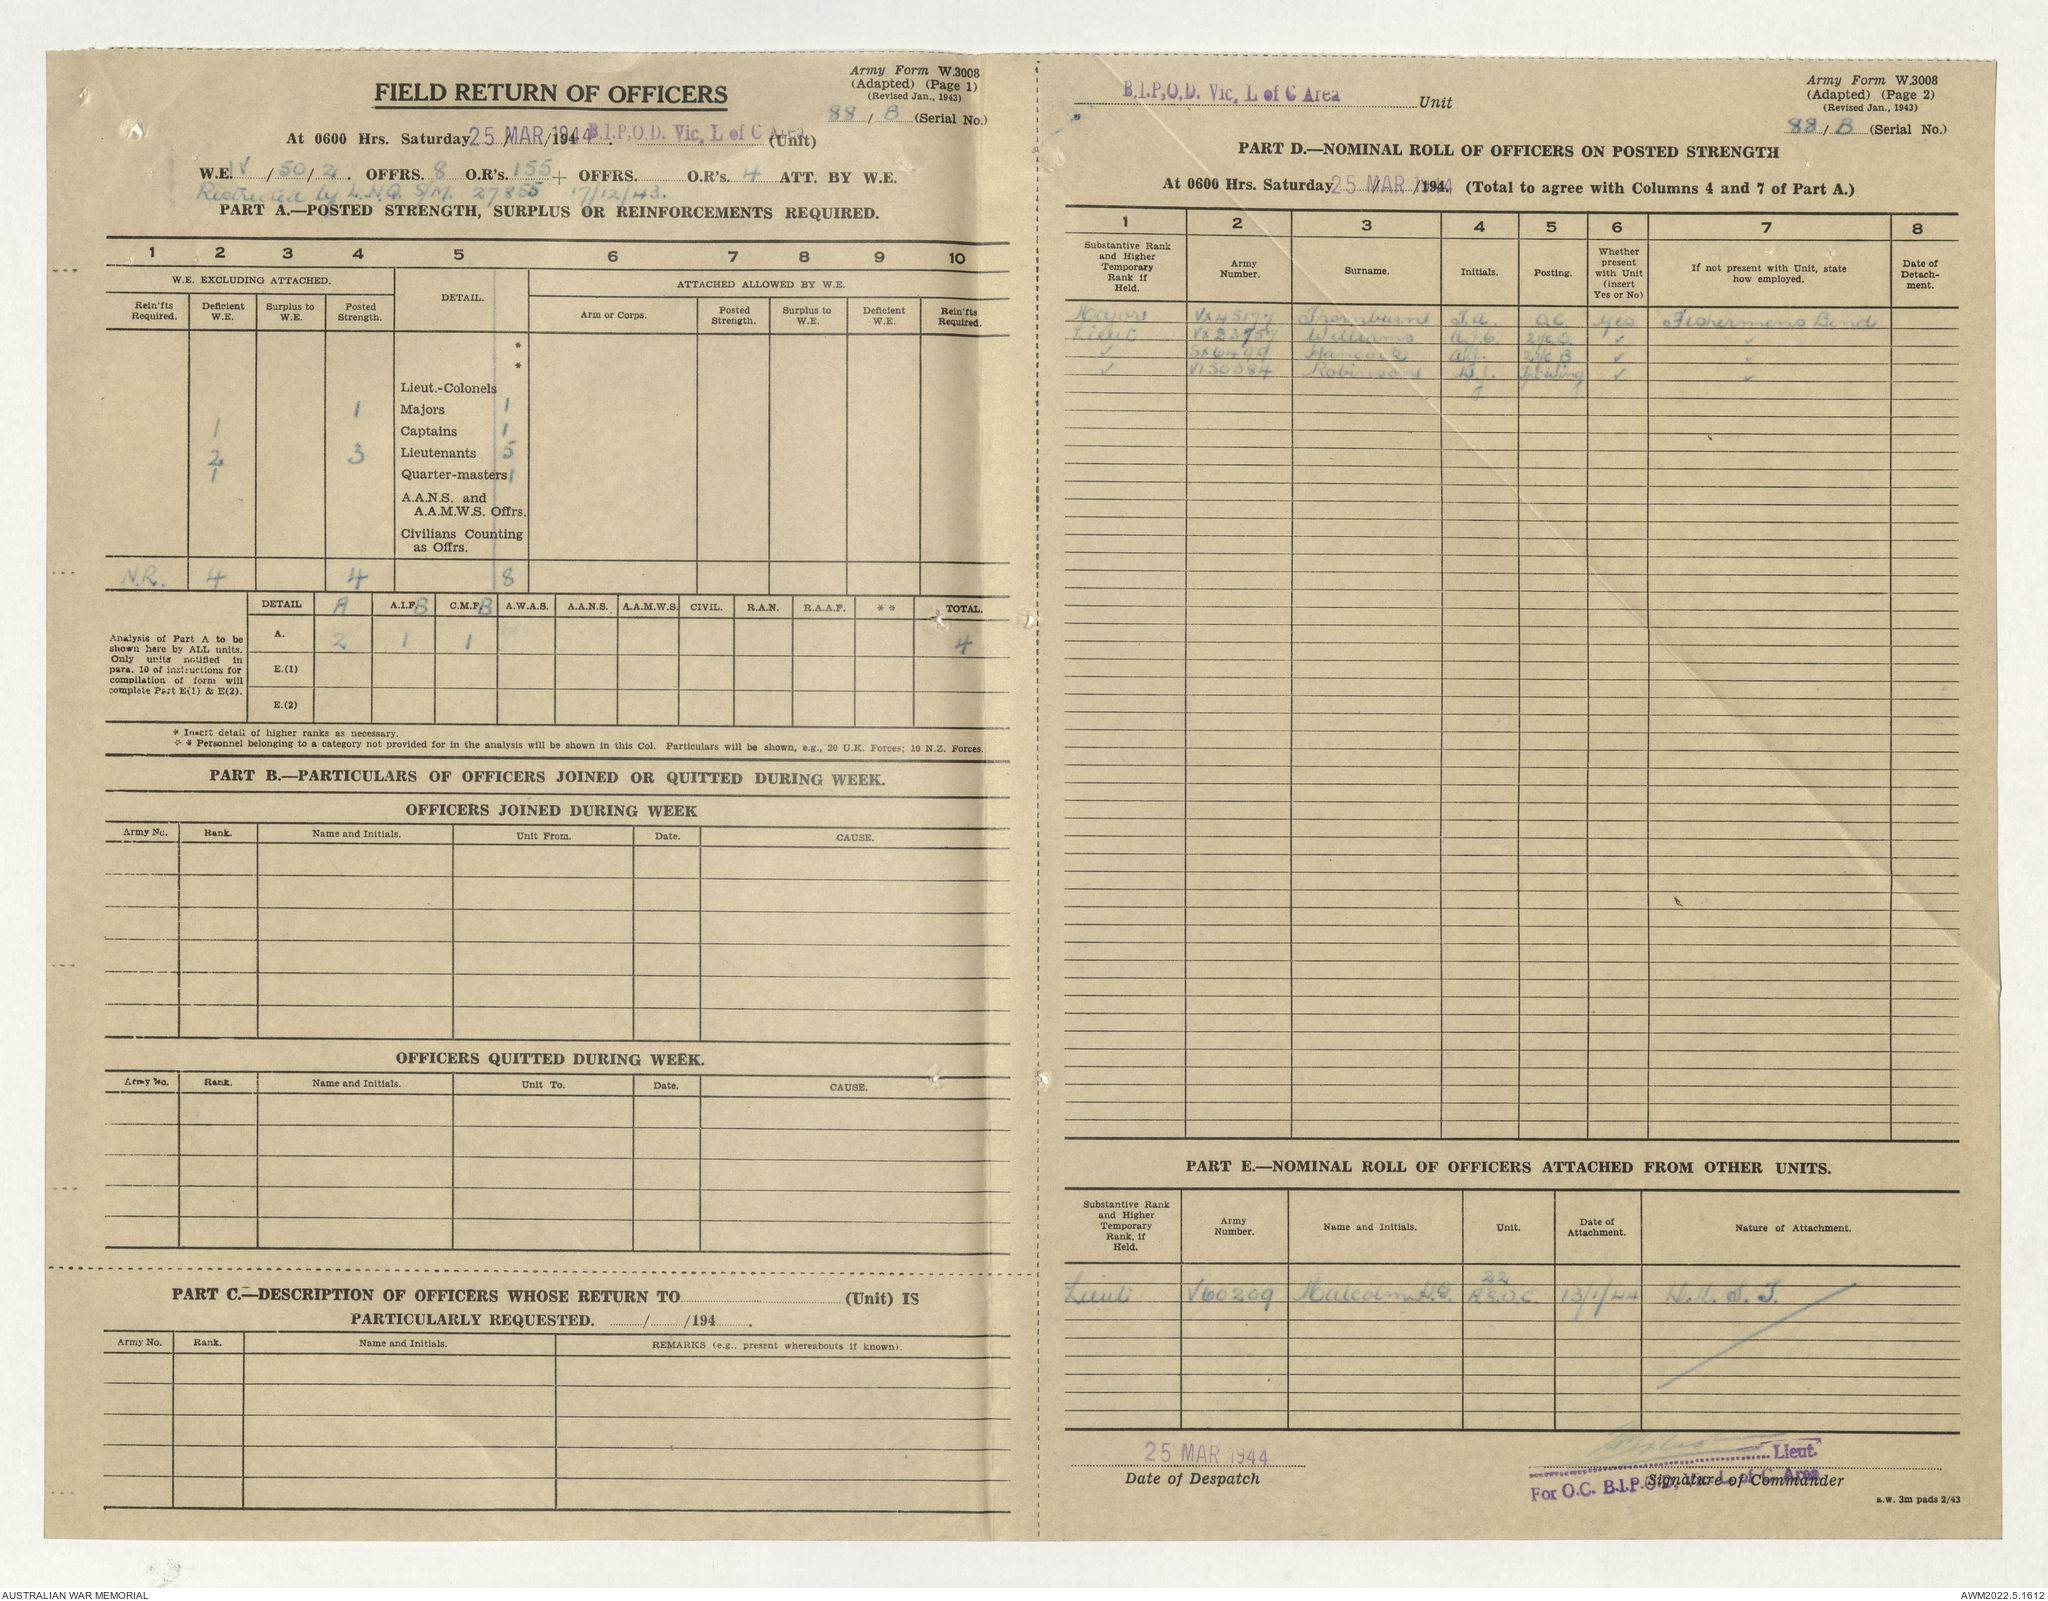 Army Form W.3008
(Adapted) (Page 1)
(Revised Jan., 1943)
FIELD RETURN OF OFFICERS
88 / B (Serial No.)
At 0600 Hrs. Saturday 25 MAR 1944 /194 . B.I.P,O.D. Vic, L of C Area (Unit)
W.E. IV / 50 / 2 . OFFRS. 8 O.R's. 155 + OFFRS. O.R's. 4 ATT. BY W.E.
Restricted by L.H.Q. S/M. 27855 17/12/43.
PART A.—POSTED STRENGTH, SURPLUS OR REINFORCEMENTS REQUIRED.
1 2 3 4 5 6 7 8 9 10
W.E. EXCLUDING ATTACHED. DETAIL. ATTACHED ALLOWED BY W.E.
Rein'fts Required. Deficient W.E. Surplus to W.E. Posted Strength. Arm or Corps. Posted Strength. Surplus to W.E. Deficient W.E. Rein'fts Required.
*
*
Lieut.-Colonels
1 Majors 1
1 Captains 1
2 3 Lieutenants 5
1 Quarter-masters 1
A.A.N.S. and
A.A.M.W.S. Offrs.
Civilians Counting
as Offrs.
N.R. 4 4 8
DETAIL A A.I.F. B C.M.F. B A.W.A.S. A.A.N.S. A.A.M.W.S. CIVIL. R.A.N. R.A.A.F. * * TOTAL.
Analysis of Part A to be
shown here by ALL units.
Only units notified in
para. 10 of instructions for
compilation of form will
complete Part E(1) & E(2).
A. 2 1 1 4
E.(1)
E.(2)
* Insert detail of higher ranks as necessary.
* * Personnel belonging to a category not provided for in the analysis will be shown in this Col. Particulars will be shown, e.g., 20 U.K. Forces; 10 N.Z. Forces.
PART B.—PARTICULARS OF OFFICERS JOINED OR QUITTED DURING WEEK.
OFFICERS JOINED DURING WEEK
Army No. Rank. Name and Initials. Unit From. Date. CAUSE.
OFFICERS QUITTED DURING WEEK.
Army No. Rank. Name and Initials. Unit To. Date. CAUSE.
PART C.—DESCRIPTION OF OFFICERS WHOSE RETURN TO (Unit) IS
PARTICULARLY REQUESTED. / /194 .
Army No. Rank. Name and Initials. REMARKS (e.g., present whereabouts if known).
B.I.P,O.D. Vic, L of C Area Unit
Army Form W.3008
(Adapted) (Page 2)
(Revised Jan., 1943)
88 / B (Serial No.)
PART D.—NOMINAL ROLL OF OFFICERS ON POSTED STRENGTH
At 0600 Hrs. Saturday 25 MAR 1944 /194 . (Total to agree with Columns 4 and 7 of Part A.)
1 2 3 4 5 6 7 8
Substantive Rank and Higher Temporary Rank if Held. Army Number. Surname. Initials. Posting. Whether present with Unit (insert Yes or No) If not present with Unit, state how employed. Date of Detachment.
Major VX45177 Thornburn O.C. Yes Fishermens Bend
Lieut VX23757 Williams A.J.C. 2i/c ✓ ✓
✓ SX6499 Hancock 2i/c B ✓ ✓
✓ V150384 Robinson W.J. Wing ✓ ✓
PART E.—NOMINAL ROLL OF OFFICERS ATTACHED FROM OTHER UNITS.
Substantive Rank and Higher Temporary Rank, if Held. Army Number. Name and Initials. Unit. Date of Attachment. Nature of Attachment.
Lieut V60209 Malcolm H.G. 22 R.S.O.C. 13/1/44
25 MAR 1944
Date of Despatch
Lieut.
For O.C. B.I.P.O.D. Vic. L. of C. Area
Signature of Commander
a.w. 3m pads 2/43
AUSTRALIAN WAR MEMORIAL
AWM2022.5.1612